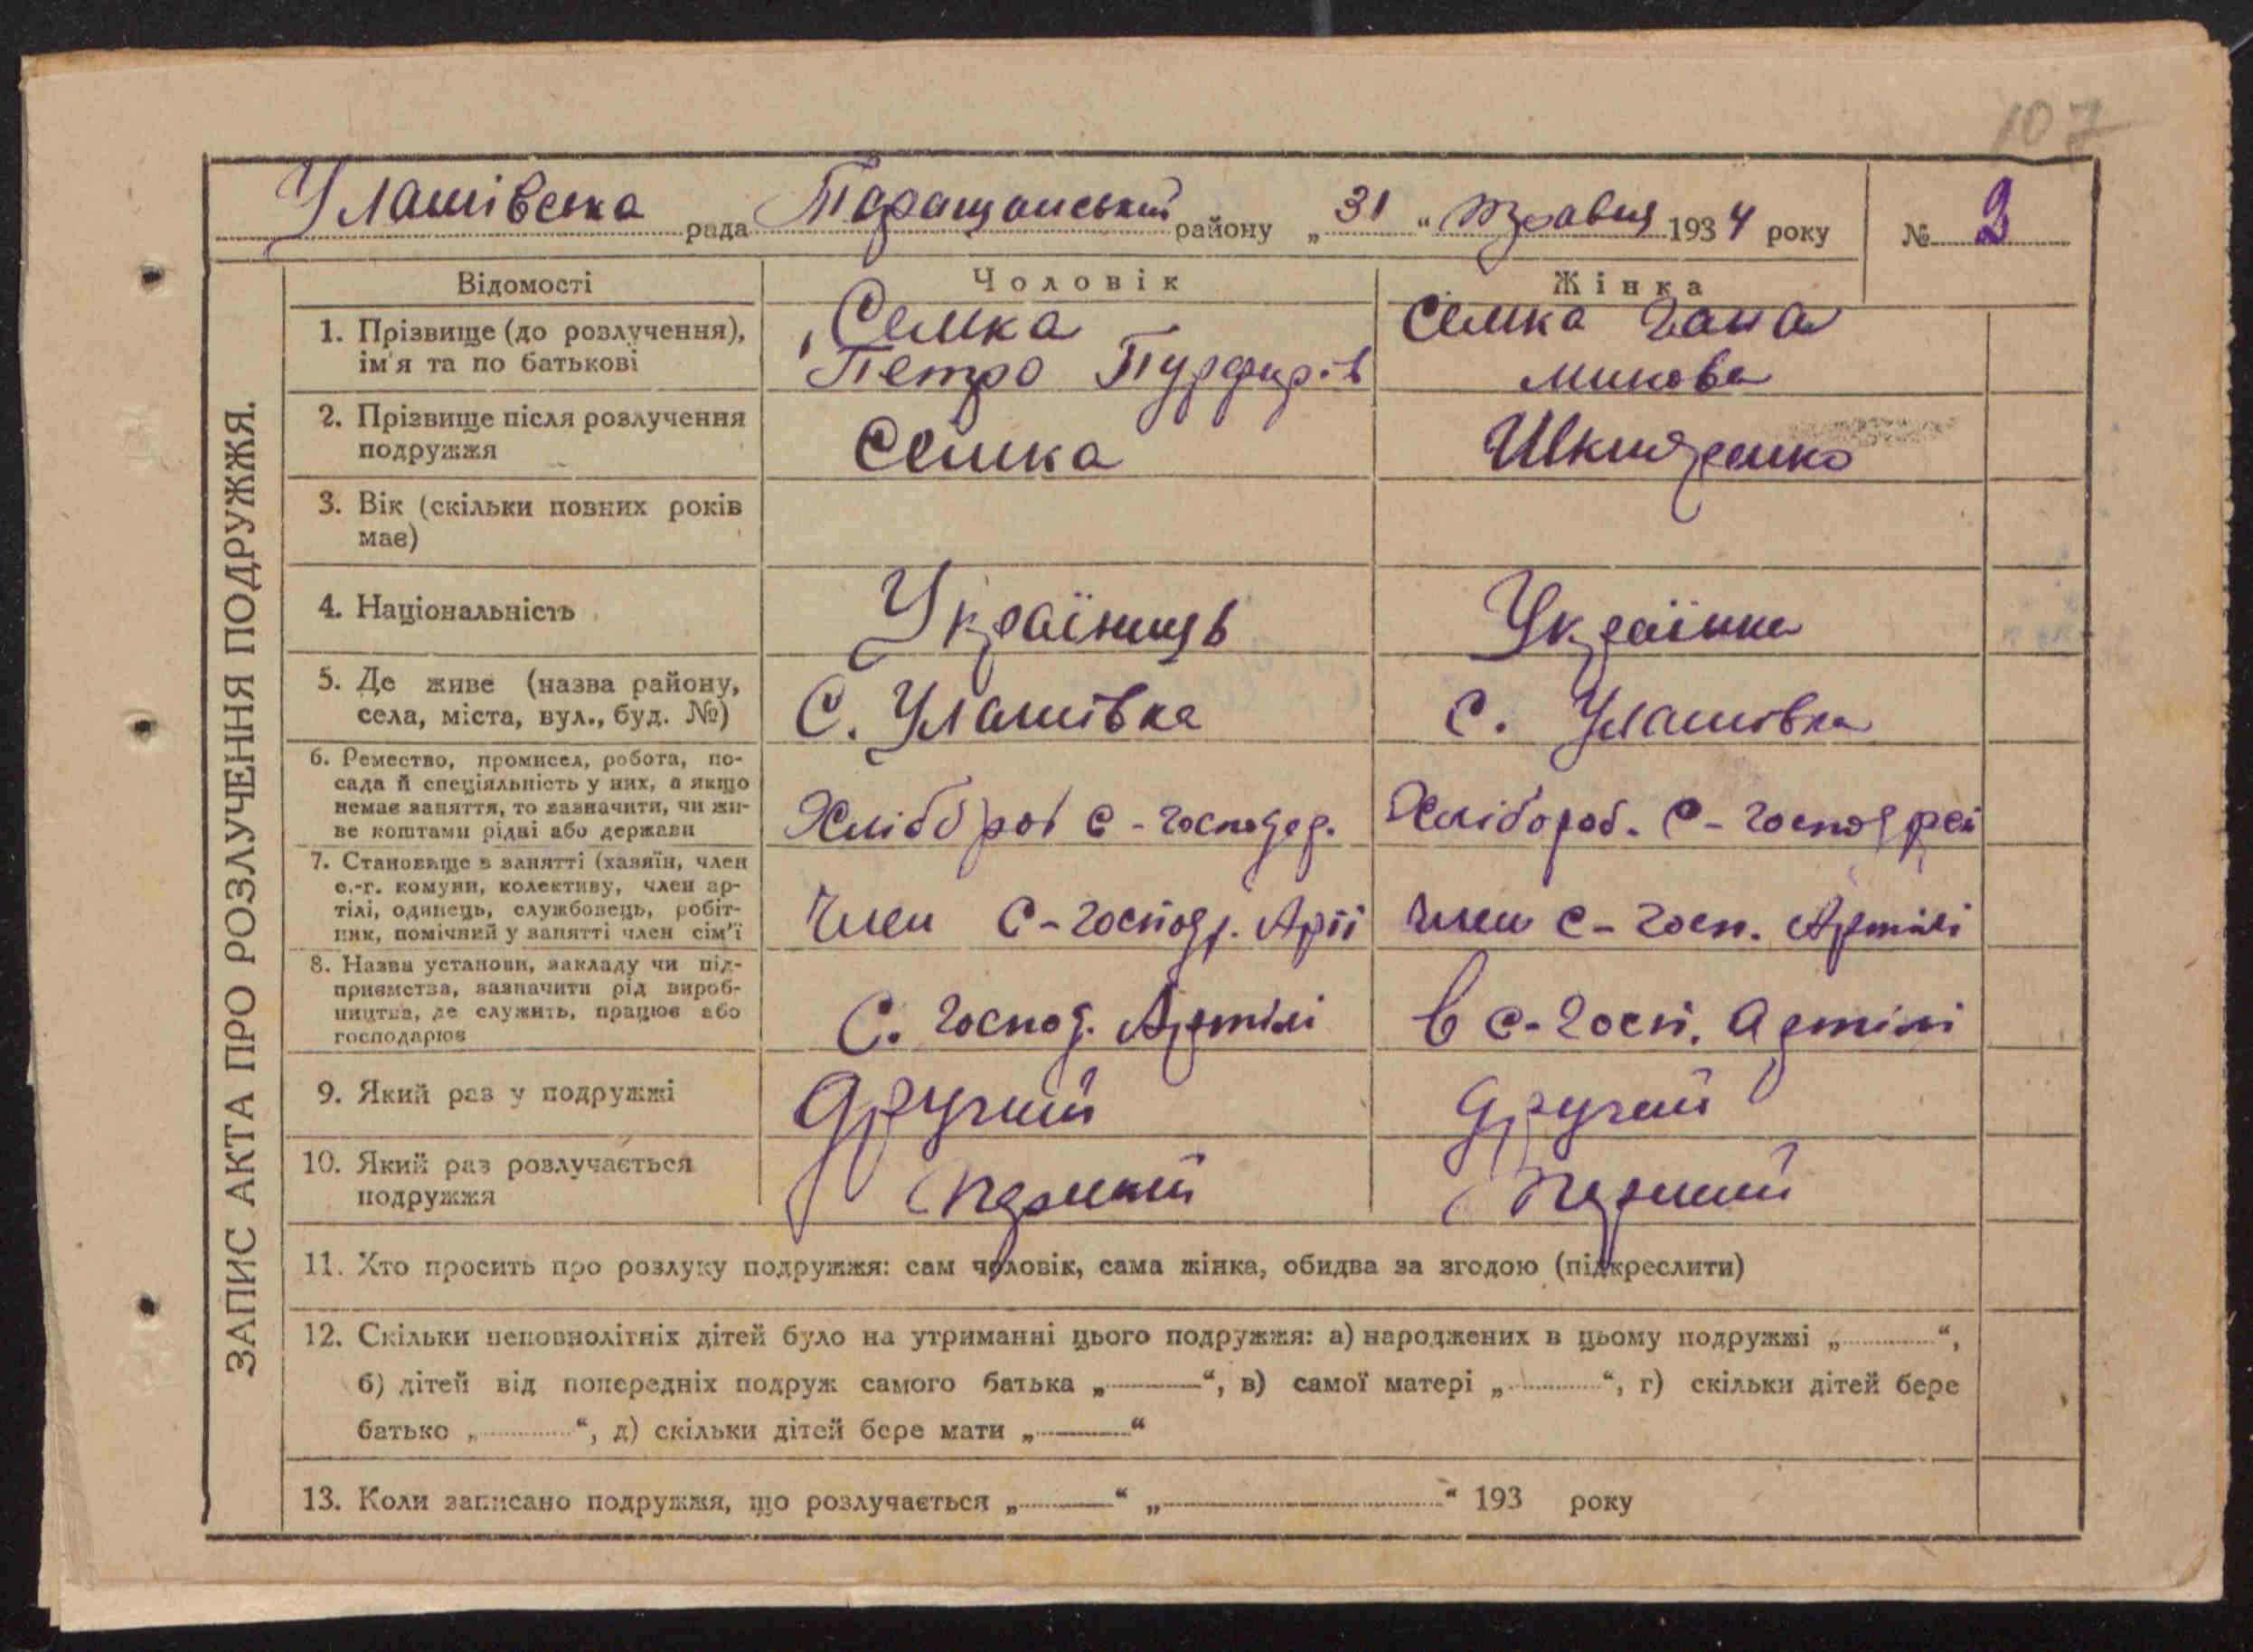 107
Улашівська рада Таращанський району „31“ травня 1934 року № 3
Відомості Чоловік Жінка
1. Прізвище (до розлучення), ім'я та по батькові
Семка
Петро Пурфирів
Семка Гана
Микова
2. Прізвище після розлучення подружжя
Семка
3. Вік (скільки повних років має)
4. Національність
Україниць
Українка
5. Де живе (назва району, села, міста, вул., буд. №)
С. Улашівка
с. Улашовка
6. Ремество, промисел, робота, по-
сада й спеціяльність у них, а якщо
немає заняття, то зазначити, чи жи-
ве коштами рідні або держави
Хлібороб с-господар.
Хлібороб. С-господрсі
7. Становище в занятті (хазяїн, член
с.-г. комуни, колективу, член ар-
тілі, одинець, службовець, робіт-
ник, помічний у занятті член сім'ї
Член С-господ. Арті
Член с-госп. Артілі
8. Назва установи, закладу чи під-
приємства, зазначити рід вироб-
ництва, де служить, працює або
господарює
С. господ. Артілі
в с-госп. Артілі
9. Який раз у подружжі
Другий
другий
10. Який раз розлучається
подружжя
перший
перший
11. Хто просить про розлуку подружжя: сам чоловік, сама жінка, обидва за згодою (підкреслити)
12. Скільки неповнолітніх дітей було на утриманні цього подружжя: а) народжених в цьому подружжі „ “,
б) дітей від попередніх подруж самого батька „ “, в) самої матері „ “, г) скільки дітей бере
батько „ “, д) скільки дітей бере мати „ “
13. Коли записано подружжя, що розлучається „ “ „ “ 193 року
ЗАПИС АКТА ПРО РОЗЛУЧЕННЯ ПОДРУЖЖЯ.